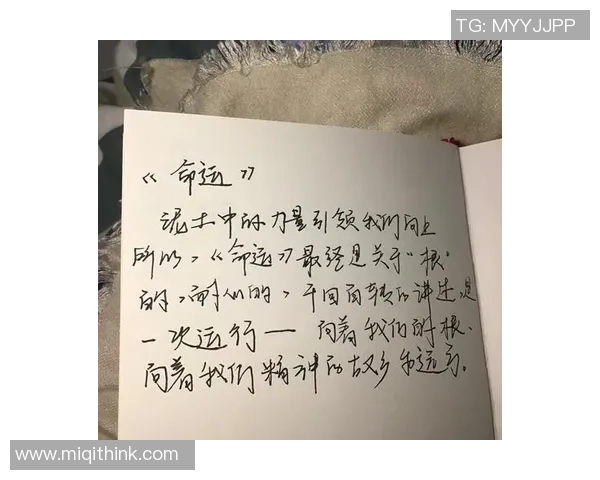 TG: MYYJJPP
《命运》
泥土中的力量引领我们向上
所以,《命运》最终是关于"根"
的,耐人的,千回百转的讲述,是
一次远行—向着我们的根、
向着我们精神的故乡的远行。
www.miqithink.com